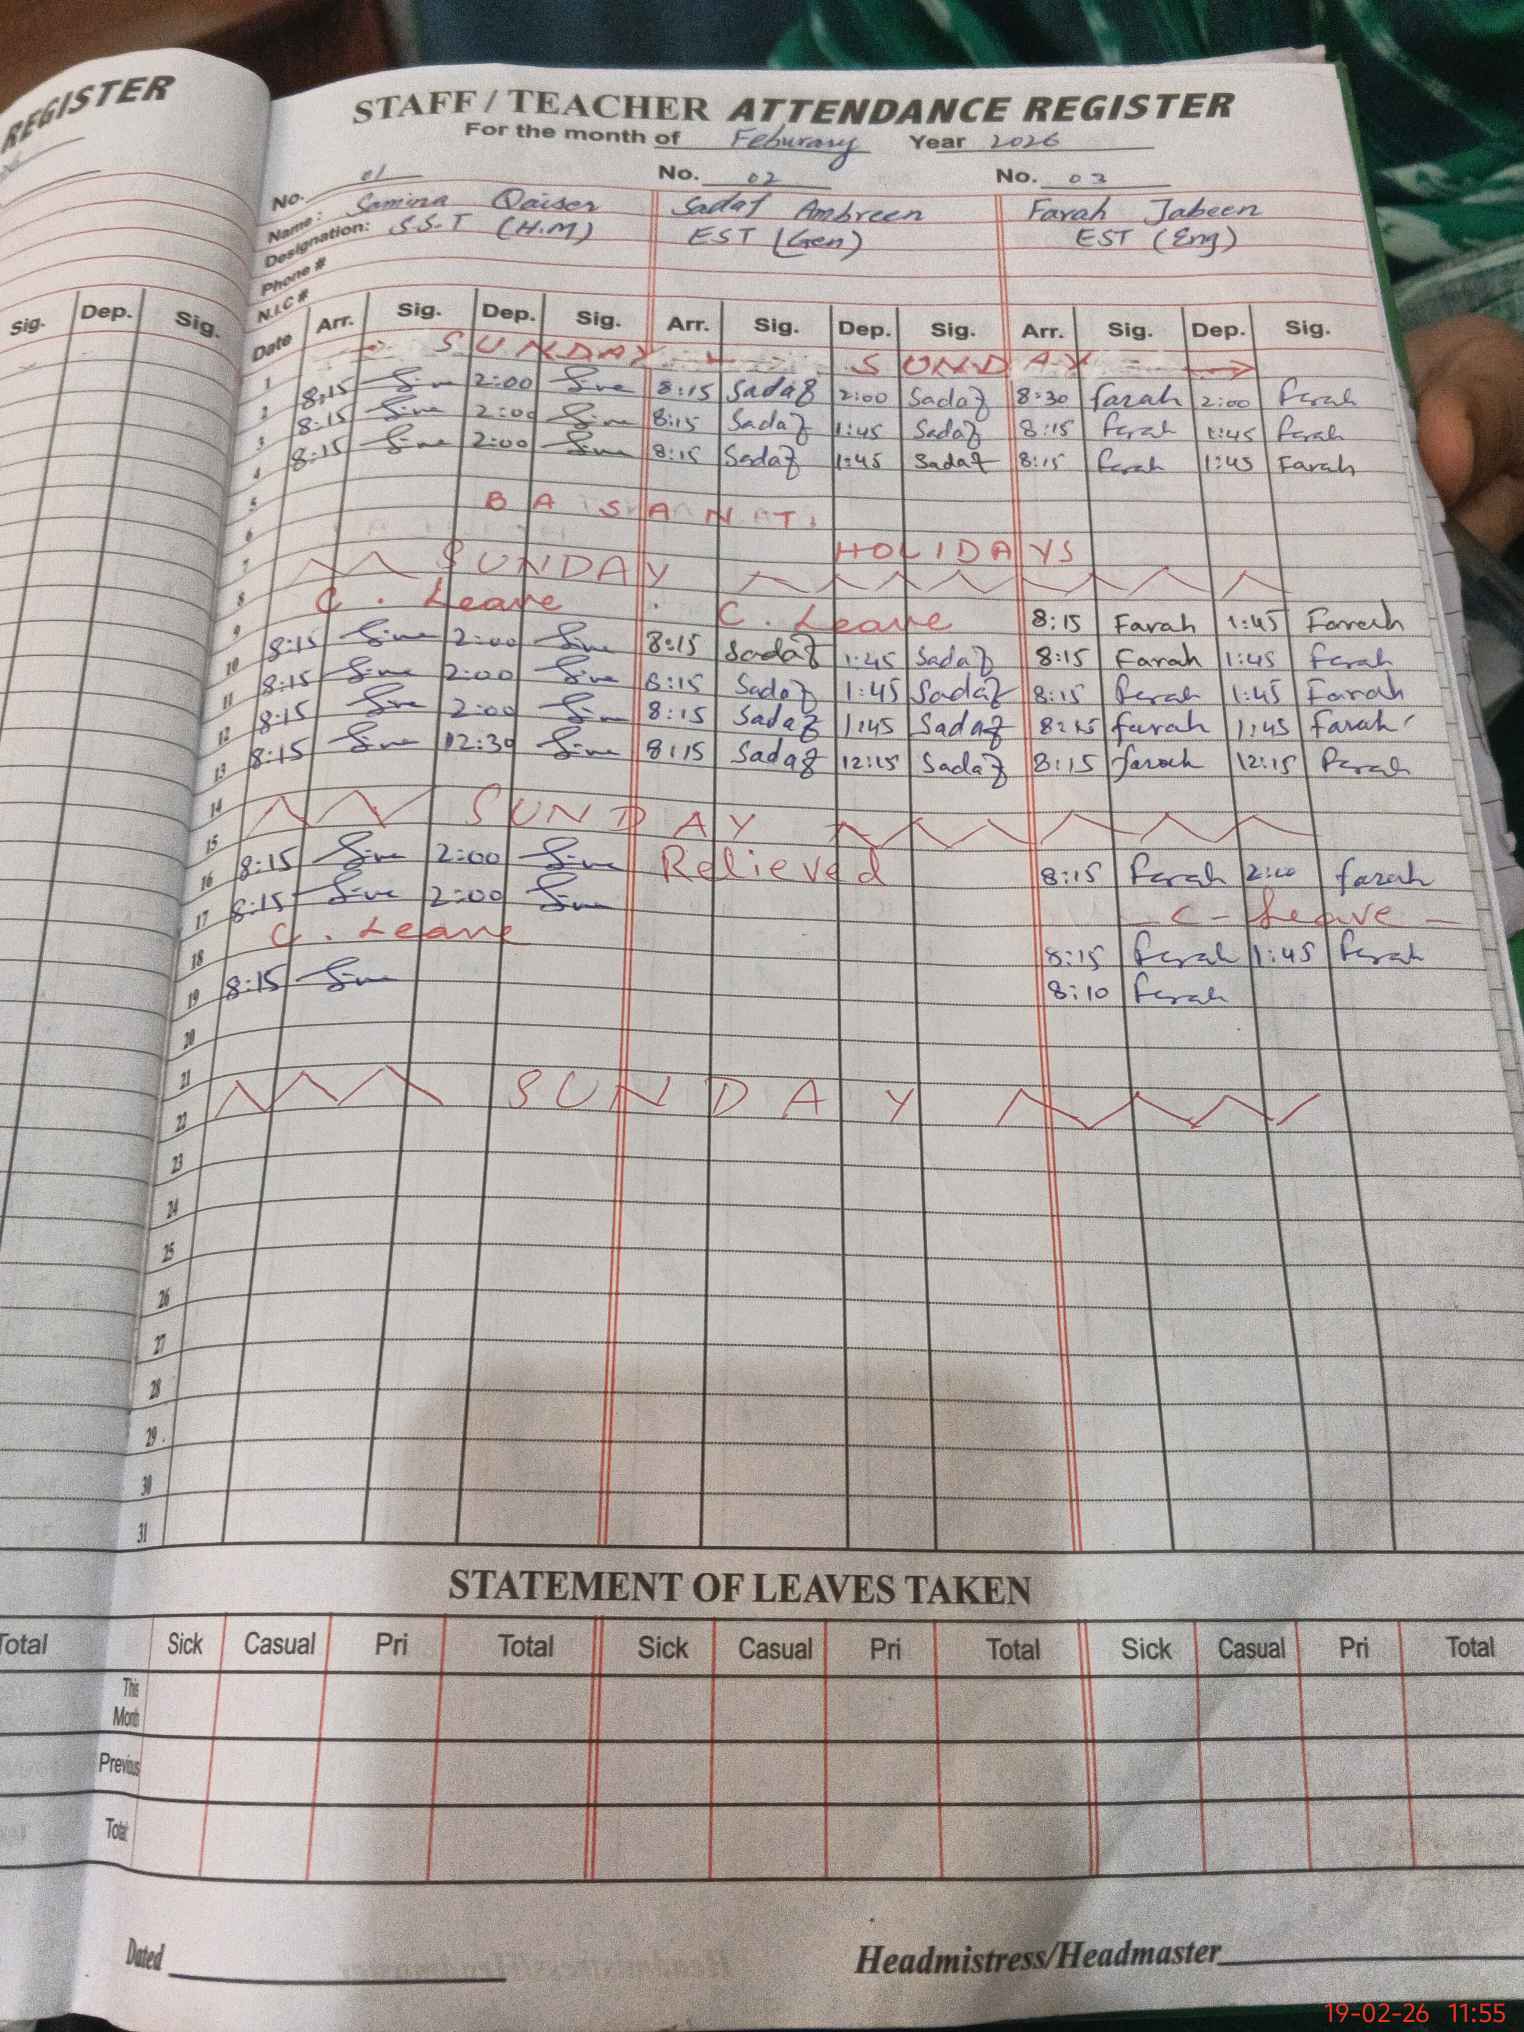 REGISTER
STAFF / TEACHER ATTENDANCE REGISTER
For the month of Feburary Year 2026
No. 01 No. 02 No. 03
Name: Samina Qaiser Sadaf Ambreen Farah Jabeen
Designation: S.S.T (H.M) EST (Gen) EST (Eng)
Phone #
N.I.C #
Sig. Dep. Sig. Date Arr. Sig. Dep. Sig. Arr. Sig. Dep. Sig. Arr. Sig. Dep. Sig.
1 SUNDAY SUNDAY
2 8:15 2:00 8:15 Sadaf 2:00 Sadaf 8:30 farah 2:00 farah
3 8:15 2:00 8:15 Sadaf 1:45 Sadaf 8:15 farah 1:45 farah
4 8:15 2:00 8:15 Sadaf 1:45 Sadaf 8:15 farah 1:45 Farah
5 BASANT
6 HOLIDAYS
7
8 SUNDAY
9 C. Leave C. Leave 8:15 Farah 1:45 Farah
10 8:15 2:00 8:15 Sadaf 1:45 Sadaf 8:15 Farah 1:45 farah
11 8:15 2:00 8:15 Sadaf 1:45 Sadaf 8:15 farah 1:45 Farah
12 8:15 2:00 8:15 Sadaf 1:45 Sadaf 8:15 farah 1:45 farah
13 8:15 12:30 8:15 Sadaf 12:15 Sadaf 8:15 farah 12:15 farah
14
15 SUNDAY
16 8:15 2:00 Relieved 8:15 farah 2:00 farah
17 8:15 2:00 C-Leave
18 C. Leave 8:15 farah 1:45 farah
19 8:15 8:10 farah
20
21
22 SUNDAY
23
24
25
26
27
28
29
30
31
STATEMENT OF LEAVES TAKEN
Total Sick Casual Pri Total Sick Casual Pri Total Sick Casual Pri Total
This Month
Previous
Total
Dated Headmistress/Headmaster
19-02-26 11:55